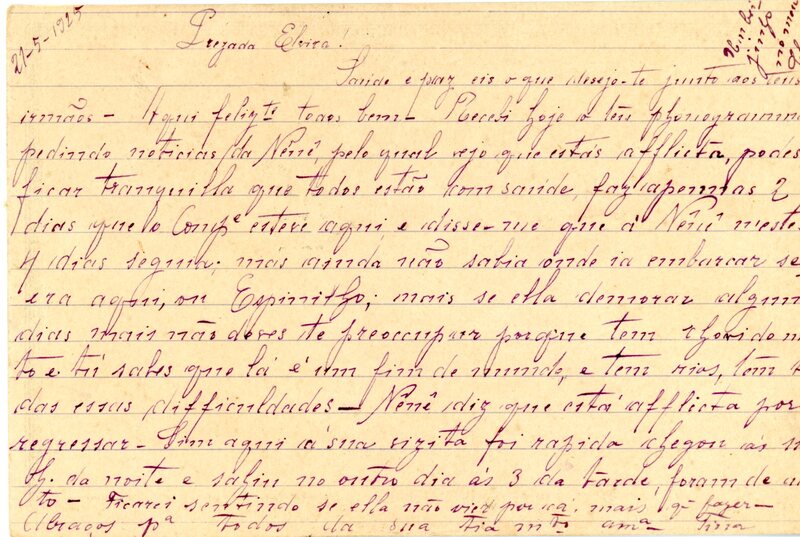 21-5-1925
Prezada Elvira!
Saude e paz eis o que desejo-te junto aos teus
irmãos - Aqui felizte todos bem - Recebi hoje o teu phonogramma
pedindo noticias da Nênê, pelo qual vejo que estás afflicta, podes
ficar tranquilla que todos estão com saúde, faz apennas 2
dias que o Compe esteve aqui e disse-me que á Nênê n'estes
4 dias seguia; mas ainda não sabia onde ia embarcar se
era aqui, ou Espinilho; mais se ella demorar algum
dias mais não deves te preocupar porque tem chovido m
to e tú sabes que lá é um fim de mundo, e tem rios, tem t
das essas difficuldades - Nênê diz que está afflicta por
regressar - Sim aqui á sua vizita foi rapida chegou ás
h. da noite e sahiu no outro dia ás 3 da tarde, foram de au
to - Ficarei sentindo se ella não vier por cá, mais q fazer -
Abraços pa todos da sua tia mto ama